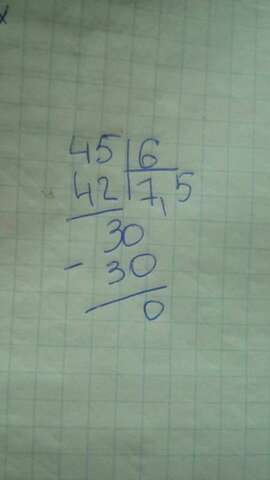 45 6
42 7,5
30
- 30
0